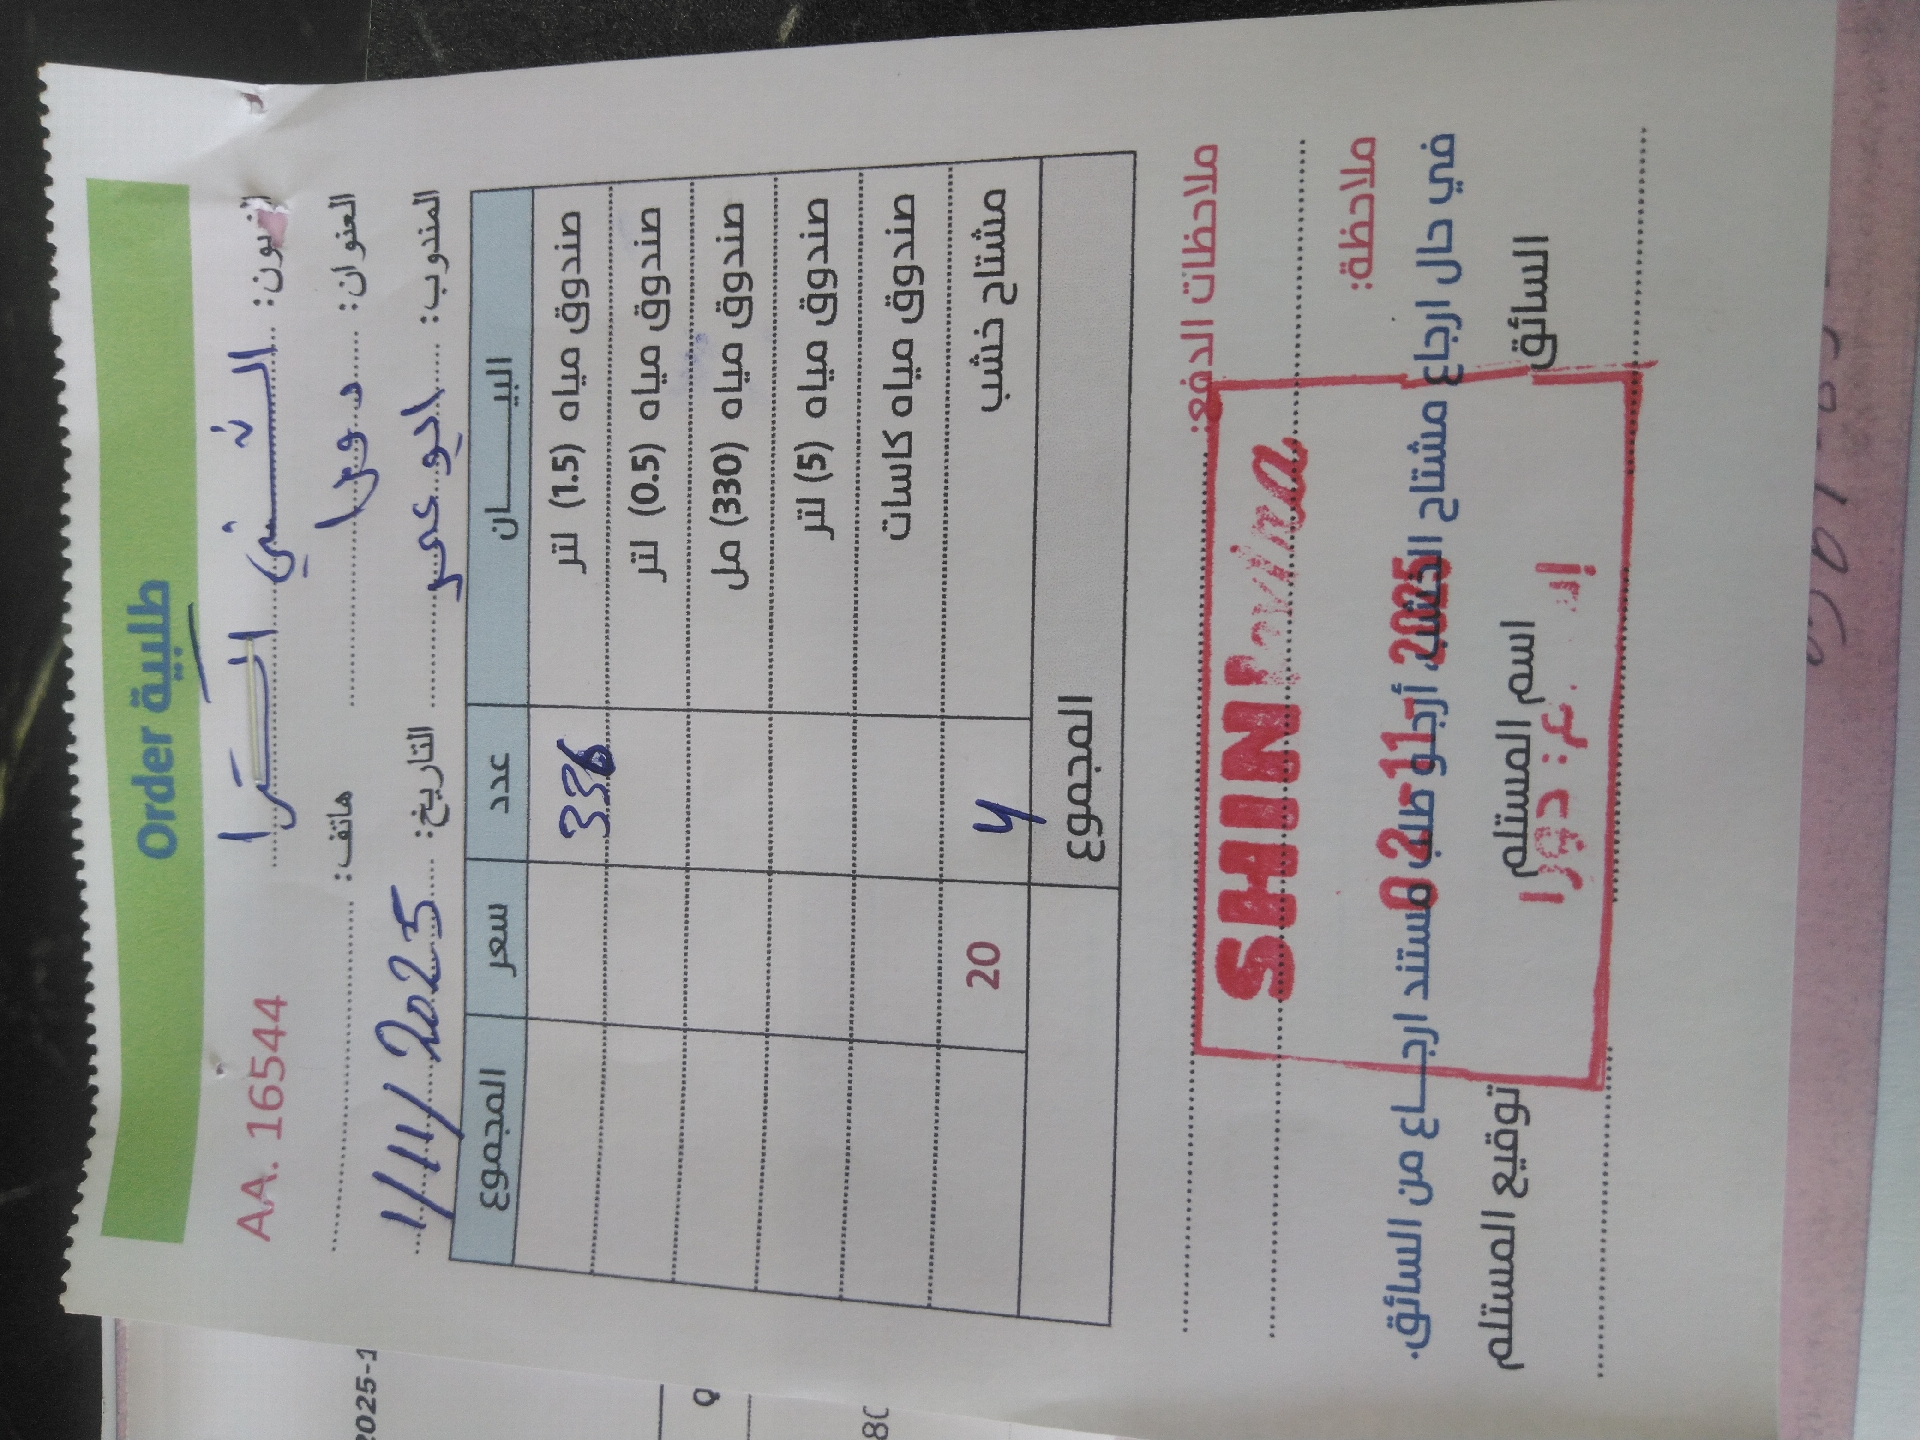 طلبية Order
الزبون: الشني السترا AA. 16544
العنوان: دورا هاتف:
المندوب: ابو عمر التاريخ: 1/11/2025
البيـــــــان عدد سعر المجموع
صندوق مياه (1.5) لتر 336
صندوق مياه (0.5) لتر
صندوق مياه (330) مل
صندوق مياه (5) لتر
صندوق مياه كاسات
مشتاح خشب 4 20
المجموع
ملاحظات الدفع:
SHINI
ملاحظة:
في حال ارجاع مشتاح الخشب، أرجو طلب مستند ارجـــاع من السائق.
0 2 -11- 2025
السائق اسم المستلم توقيع المستلم
ع: دورا
2025-1
Q
80